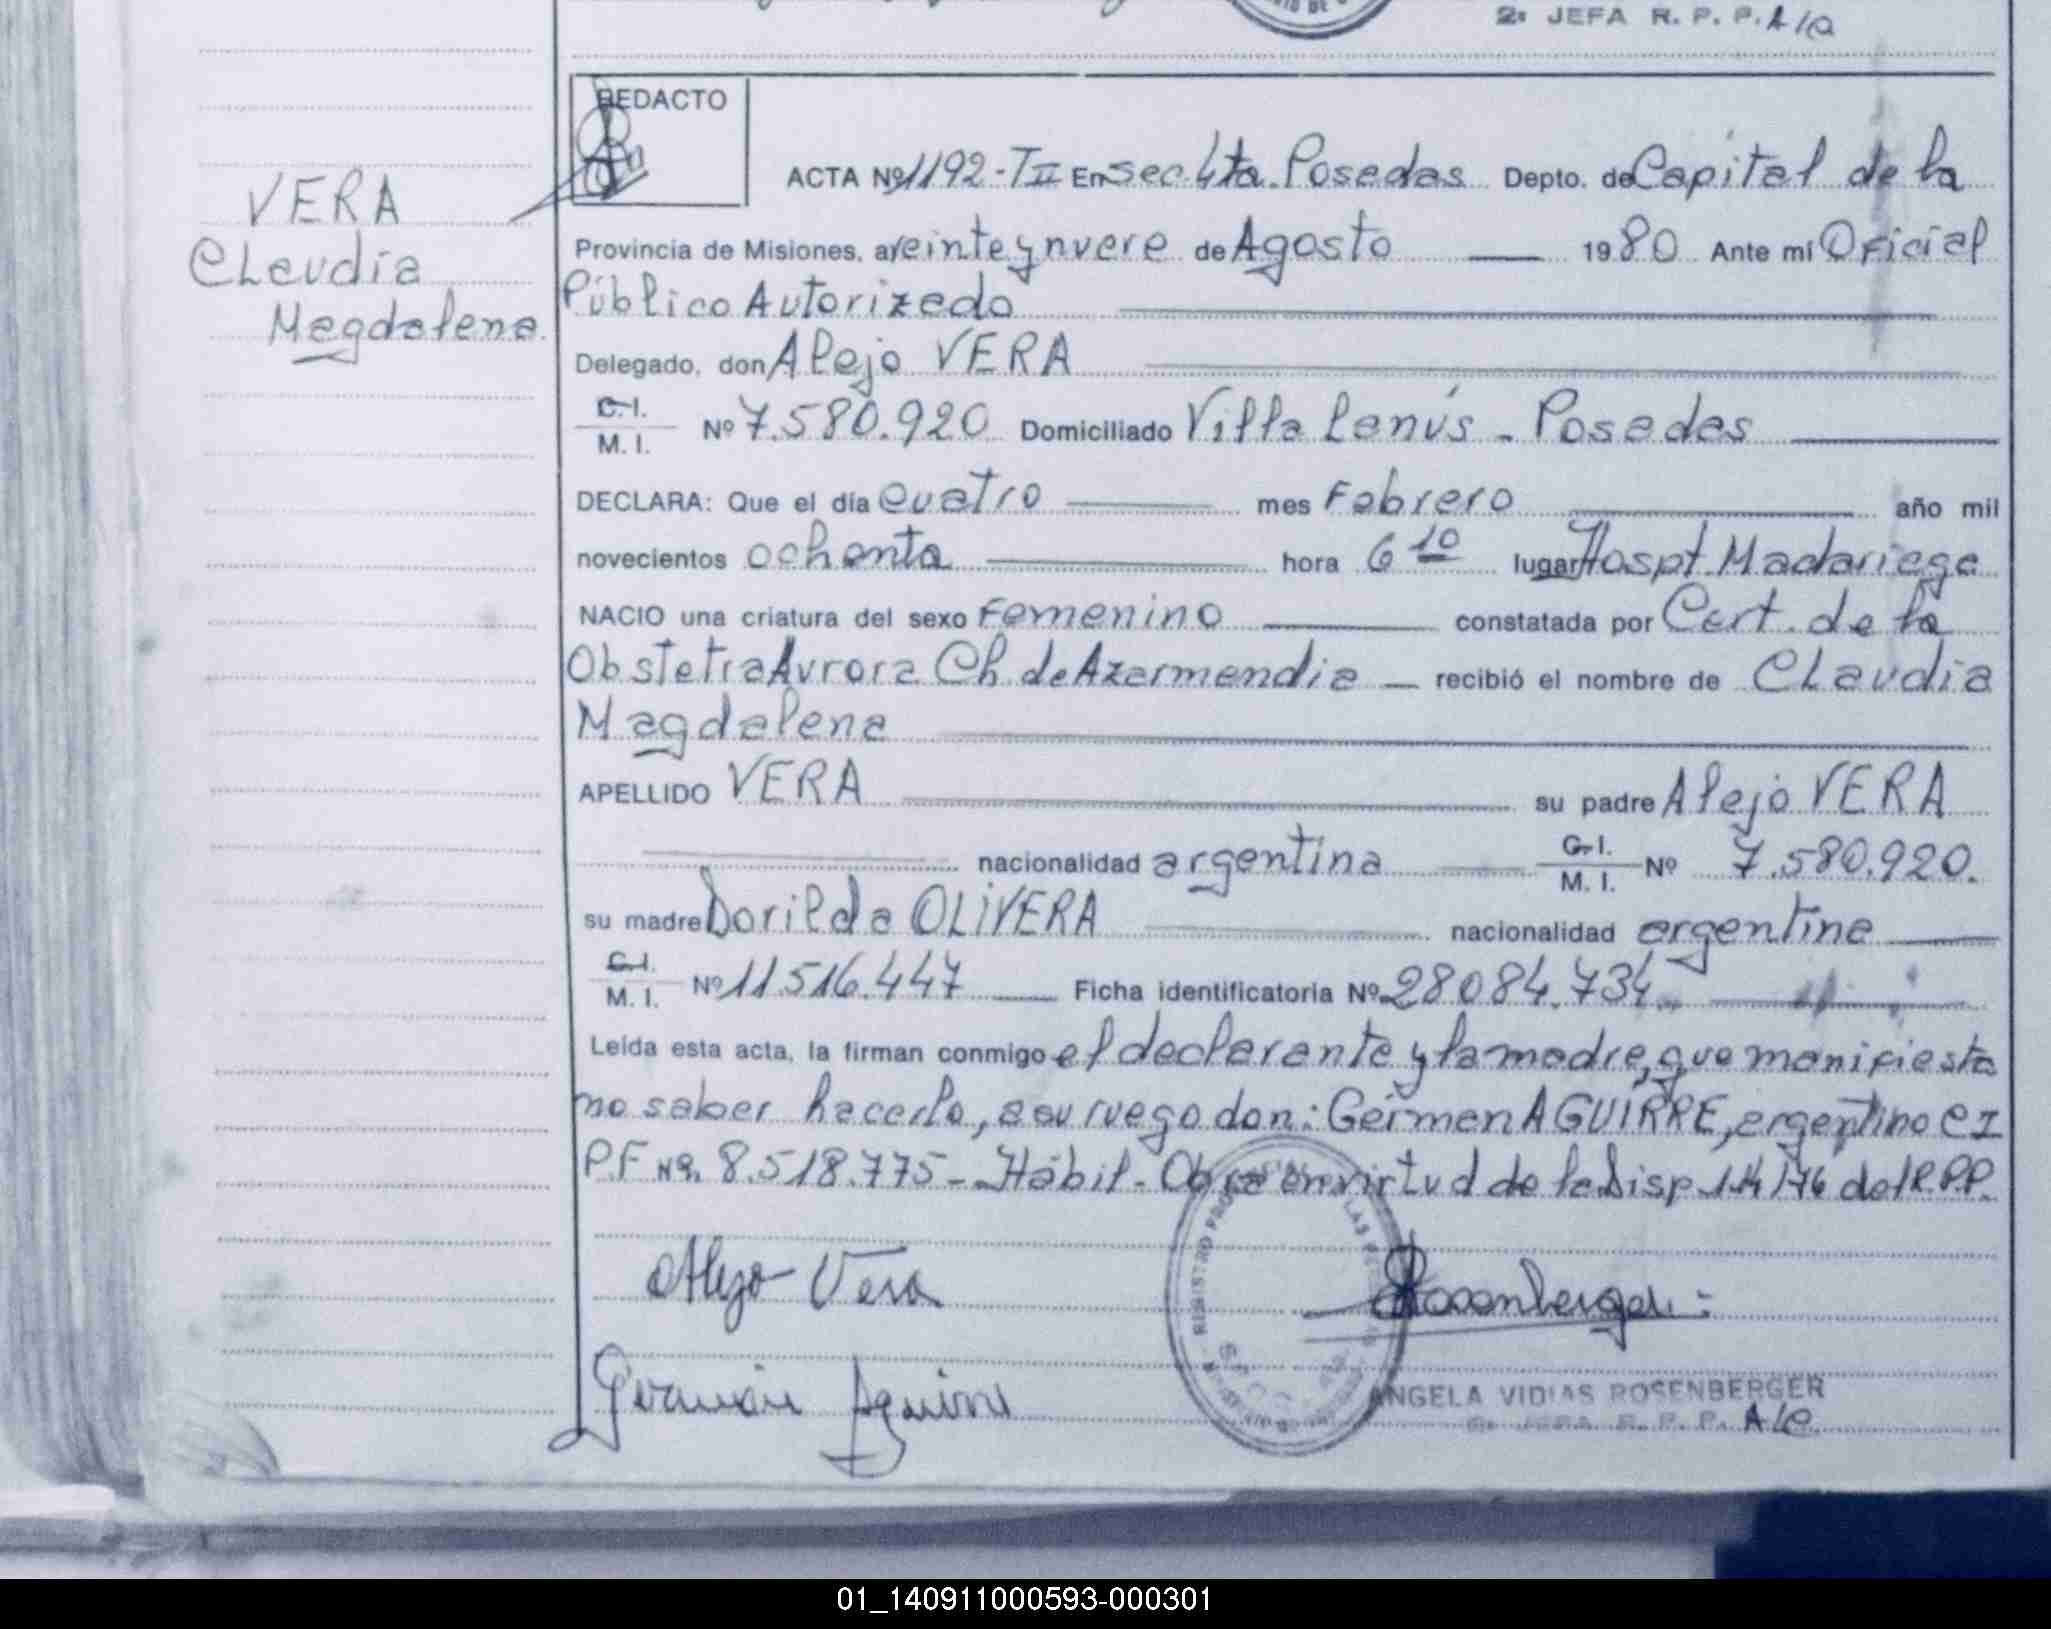 2º JEFA R. P. P. A/C
REDACTO
ACTA Nº 1192-T II En Sec. 4ta. Posadas Depto. de Capital de la
VERA
Claudia
Magdalena.
Provincia de Misiones, a veinte y nueve de Agosto 1980 Ante mí Oficial
Público Autorizado
Delegado, don Alejo VERA
C.I.
M. I. Nº 7.580.920 Domiciliado Villa Lanús - Posadas
DECLARA: Que el día cuatro mes Febrero año mil
novecientos ochenta hora 6 10 lugar Hospt. Madariaga
NACIO una criatura del sexo Femenino constatada por Cert. de la
Obstetra Aurora Ch. de Azarmendia recibió el nombre de Claudia
Magdalena
APELLIDO VERA su padre Alejo VERA
nacionalidad argentina C.I. M. I. Nº 7.580.920.
su madre Dorilda OLIVERA nacionalidad argentina
C.I.
M. I. Nº 11.516.447 Ficha identificatoria Nº 28084.734
Leída esta acta, la firman conmigo el declarante y la madre, que manifiesta
no saber hacerlo, a su ruego don: Germán AGUIRRE, argentino CI
P.F Nº. 8.518.775 - Hábil - en virtud de la Disp 14/76 del R.P.P.
Alejo Vera
Rosenberger
Germán Aguirre
ANGELA VIDIAS ROSENBERGER
2º JEFA R. P. P. A/C
01_140911000593-000301